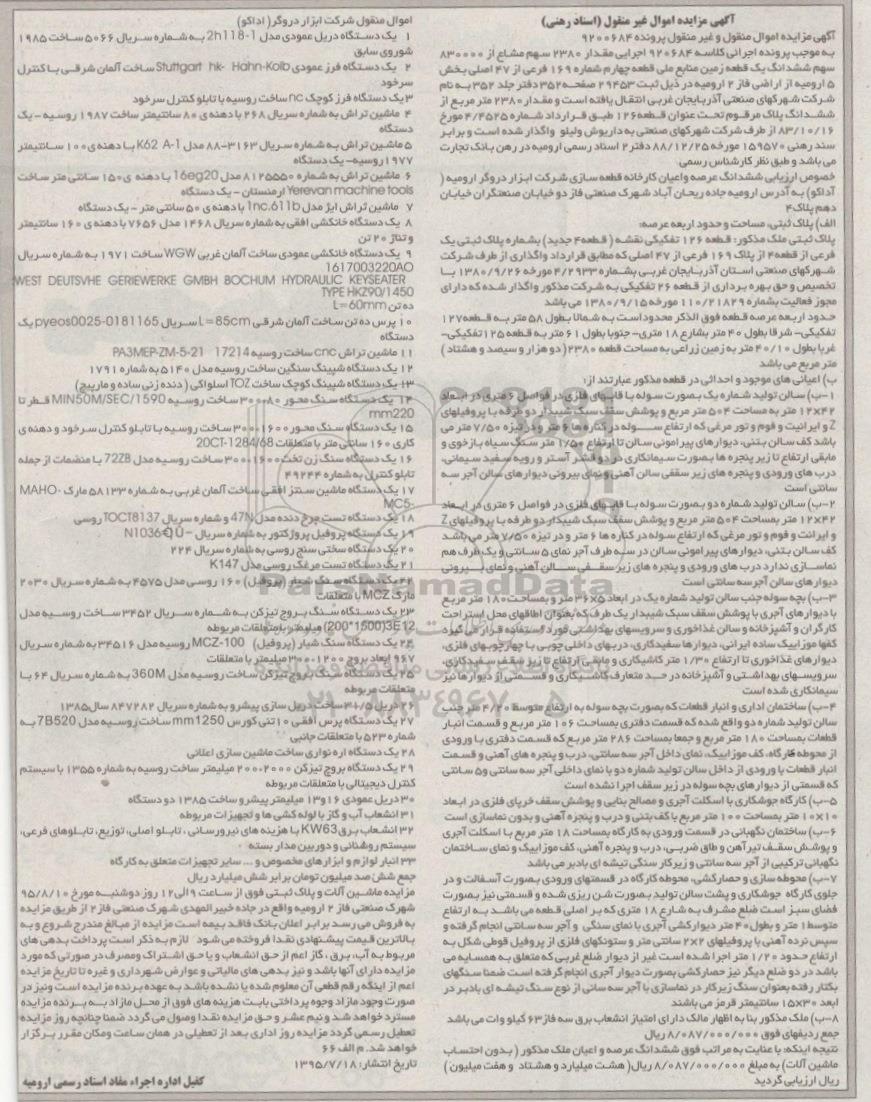 آگهی مزایده اموال غیر منقول (اسناد رهنی)
آگهی مزایده اموال منقول و غیر منقول پرونده ۹۲۰۰۶۸۴
به موجب پرونده اجرائی کلاسه ۹۲۰۶۸۴ اجرایی مقدار ۲۳۸۰ سهم مشاع از ۸۳۰۰۰۰
سهم ششدانگ یک قطعه زمین منابع ملی قطعه چهارم شماره ۱۶۹ فرعی از ۴۷ اصلی بخش
۵ ارومیه از اراضی فاز ۲ ارومیه در ذیل ثبت ۲۹۴۵۳ صفحه ۳۵۲ دفتر جلد ۳۵۲ به نام
شرکت شهرکهای صنعتی آذربایجان غربی انتقال یافته است و مقدار ۲۳۸۰ متر مربع از
ششدانگ پلاک مرقوم تحت عنوان قطعه ۱۲۶ طبق قرارداد شماره ۴/۴۵۲۵ مورخ
۸۳/۱۰/۱۶ از طرف شرکت شهرکهای صنعتی به داریوش ولیلو واگذار شده است و برابر
سند رهنی ۱۵۹۵۷۰ مورخه ۸۸/۱۲/۲۵ دفتر ۲ اسناد رسمی ارومیه در رهن بانک تجارت
می باشد و طبق نظر کارشناس رسمی:
خصوص ارزیابی ششدانگ عرصه واعیان کارخانه قطعه سازی شرکت ابزار دروگر ارومیه (
آداکو) به آدرس ارومیه جاده ریحان آباد شهرک صنعتی فاز دو خیابان صنعتگران خیابان
دهم پلاک ۴
الف) پلاک ثبتی، مساحت و حدود اربعه عرصه:
پلاک ثبتی ملک مذکور: قطعه ۱۲۶ تفکیکی نقشه ( قطعه ۴ جدید) بشماره پلاک ثبتی یک
فرعی از قطعه ۴ از پلاک ۱۶۹ فرعی از ۴۷ اصلی که مطابق قرارداد واگذاری از طرف شرکت
شهرکهای صنعتی استان آذربایجان غربی بشماره ۴/۲۹۳۳ مورخه ۱۳۸۰/۹/۲۶ با
تخصیص و حق بهره برداری از قطعه ۲۶ تفکیکی به شرکت مذکور واگذار شده که دارای
مجوز فعالیت بشماره ۱۱۰/۲۱۸۲۹ مورخه ۱۳۸۰/۹/۱۵ می باشد
حدود اربعه عرصه قطعه فوق الذکر محدود است به شمالا بطول ۵۸ متر به قطعه ۱۲۷
تفکیکی- شرقا بطول ۴۰ متر بشارع ۱۸ متری- جنوبا بطول ۶۱ متر به قطعه ۱۲۵ تفکیکی-
غربا بطول ۴۰/۱۰ متر به زمین زراعی به مساحت قطعه ۲۳۸۰( دو هزار و سیصد و هشتاد )
متر مربع می باشد
ب) اعیانی های موجود و احداثی در قطعه مذکور عبارتند از:
۱-ب) سالن تولید شماره یک بصورت سوله با قابهای فلزی در فواصل ۶ متری در ابعاد
۱۲×۴۲ متر به مساحت ۵۰۴ متر مربع و پوشش سقف سبک شیبدار دو طرفه با پروفیلهای
Z و ایرانیت و فوم و تور مرغی که ارتفاع سوله در کناره ها ۶ متر و در تیزه ۷/۵۰ متر می
باشد کف سالن بتنی، دیوارهای پیرامونی سالن تا ارتفاع ۱/۵۰ متر سنگ سیاه بازخوی و
مابقی ارتفاع تا زیر پنجره ها بصورت سیمانکاری در دو قشر آستر و رویه سفید سیمانی،
درب های ورودی و پنجره های زیر سقفی سالن آهنی و نمای بیرونی دیوارهای سالن آجر سه
سانتی است
۲-ب) سالن تولید شماره دو بصورت سوله با قابهای فلزی در فواصل ۶ متری در ابعاد
۱۲×۴۲ متر بمساحت ۵۰۴ متر مربع و پوشش سقف سبک شیبدار دو طرفه با پروفیلهای Z
و ایرانت و فوم و تور مرغی که ارتفاع سوله در کناره ها ۶ متر و در تیزه ۷/۵۰ متر می باشد
کف سالن بتنی، دیوارهای پیرامونی سالن در سه طرف آجر نمای ۵ سانتی و یک طرف هم
نماسازی ندارد درب های ورودی و پنجره های زیر سقفی سالن آهنی و نمای بیرونی
دیوارهای سالن آجر سه سانتی است
۳-ب) بچه سوله جنب سالن تولید شماره یک در ابعاد ۵×۳۶ متر و بمساحت ۱۸۰ متر مربع
با دیوارهای آجری با پوشش سقف سبک شیبدار یک طرف که بعنوان اطاقهای محل استراحت
کارگران و آشپزخانه و سالن غذاخوری و سرویسهای بهداشتی مورد استفاده قرار می گیرد
کفها موزاییک ساده ایرانی، دیوارها سفیدکاری، دربهای داخلی چوبی با چهارچوبهای فلزی،
دیوارهای غذاخوری تا ارتفاع ۱/۳۰ متر کاشیکاری و مابقی ارتفاع تا زیر سقف سفیدکاری،
سرویسهای بهداشتی و آشپزخانه در حد متعارف کاشیکاری و قسمتی از دیوارها نیز
سیمانکاری شده است
۴-ب) ساختمان اداری و انبار قطعات که بصورت بچه سوله به ارتفاع متوسط ۴/۲۰ متر جنب
سالن تولید شماره دو واقع شده که قسمت دفتری بمساحت ۱۰۶ متر مربع و قسمت انبار
قطعات بمساحت ۱۸۰ متر مربع و جمعا بمساحت ۲۸۶ متر مربع که قسمت دفتری با ورودی
از محوطه کارگاه، کف موزاییک، نمای داخل آجر سه سانتی، درب و پنجره های آهنی و قسمت
انبار قطعات با ورودی از داخل سالن تولید شماره دو با نمای داخلی آجر سه سانتی و ۵ سانتی
که قسمتی از دیوارهای بچه سوله در زیر سقف اجرا نشده است
۵-ب) کارگاه جوشکاری با اسکلت آجری و مصالح بنایی و پوشش سقف خرپای فلزی در ابعاد
۱۰×۱۰ متر بمساحت ۱۰۰ متر مربع با کف بتنی و درب و پنجره آهنی و بدون نماسازی است
۶-ب) ساختمان نگهبانی در قسمت ورودی به کارگاه بمساحت ۱۸ متر مربع با اسکلت آجری
و پوشش سقف تیرآهن و طاق ضربی، درب و پنجره آهنی، کف موزاییک و نمای ساختمان
نگهبانی ترکیبی از آجر سه سانتی و زیرکار سنگی تیشه ای بادبر می باشد
۷-ب) محوطه سازی و حصارکشی، محوطه کارگاه در قسمتهای ورودی بصورت آسفالت و در
جلوی کارگاه جوشکاری و پشت سالن تولید بصورت شن ریزی شده و قسمتی نیز بصورت
فضای سبز است ضلع مشرف به شارع ۱۸ متری که بر اصلی قطعه می باشد به ارتفاع
متوسط ۱ متر و بطول ۴۰ متر دیوارکشی آجری با نمای سنگی و آجر سه سانتی انجام گرفته و
سپس نرده آهنی با پروفیلهای ۲×۲ سانتی متر و ستونکهای فلزی از پروفیل قوطی شکل به
ارتفاع حدود ۱/۲۰ متر اجرا شده است غیر از دیوار ضلع غربی که متعلق به همسایه می
باشد در دو ضلع دیگر نیز حصارکشی بصورت دیوار آجری انجام گرفته است ضمنا سنگهای
بکتار رفته بعنوان سنگ زیرکار در نماسازی با آجر سه سانی از نوع سنگ تیشه ای بادبر در
ابعد ۳۰×۱۵ سانتیمتر قرمز می باشند
۸-ب) ملک مذکور بنا به اظهار مالک دارای امتیاز انشعاب برق سه فاز ۶۳ کیلو وات می باشد
جمع ردیفهای فوق ۸/۰۸۷/۰۰۰/۰۰۰ ریال
نتیجه اینکه: با عنایت به مراتب فوق ششدانگ عرصه و اعیان ملک مذکور ( بدون احتساب
ماشین آلات) به مبلغ ۸/۰۸۷/۰۰۰/۰۰۰ ریال( هشت میلیارد و هشتاد و هفت میلیون )
ریال ارزیابی گردید
اموال منقول شرکت ابزار دروگر( اداکو)
۱ یک دستگاه دریل عمودی مدل 2h118-1 به شماره سریال ۵۰۶۶ ساخت ۱۹۸۵
شوروی سابق
۲ یک دستگاه فرز عمودی Stuttgart hk- Hahn-Kolb ساخت آلمان شرقی با کنترل
سرخود
۳ یک دستگاه فرز کوچک nc ساخت روسیه با تابلو کنترل سرخود
۴ ماشین تراش به شماره سریال ۲۶۸ با دهنه ی ۸۰ سانتیمتر ساخت ۱۹۸۷ روسیه - یک
دستگاه
۵ ماشین تراش به شماره سریال ۳۱۶۳-۸۸ مدل K62 A-1 با دهنه ی ۱۰۰ سانتیمتر
۱۹۷۷ روسیه- یک دستگاه
۶ ماشین تراش به شماره ۸۱۲۵۵۵۰ مدل 16eg20 با دهنه ی ۱۵۰ سانتی متر ساخت
Yerevan machine tools ارمنستان - یک دستگاه
۷ ماشین تراش ایژ مدل 1nc.611b با دهنه ی ۵۰ سانتی متر - یک دستگاه
۸ یک دستگاه خانکشی افقی به شماره سریال ۱۴۶۸ مدل ۷۶۵۶ با دهنه ی ۱۶۰ سانتیمتر
و تناژ ۲۰ تن
۹ یک دستگاه خانکشی عمودی ساخت آلمان غربی WGW ساخت ۱۹۷۱ به شماره سریال
1617003220AO
WEST DEUTSVHE GERIEWERKE GMBH BOCHUM HYDRAULIC KEYSEATER
TYPE HKZ90/1450
ده تن L=60mm
۱۰ پرس ده تن ساخت آلمان شرقی L=85cm سریال pyeos0025-0181165 یک
دستگاه
۱۱ ماشین تراش cnc ساخت روسیه PA3MEP-ZM-5-21 17214
۱۲ یک دستگاه شپینگ سنگین ساخت روسیه مدل ۵۱۴۰ به شماره ۱۷۹۱
۱۳ یک دستگاه شپینگ کوچک ساخت TOZ اسلواکی ( دنده زنی ساده و مارپیچ)
۱۴ یک دستگاه سنگ محور ۸۰*۳۰۰ ساخت روسیه MIN50M/SEC/1590 قطر تا
mm220
۱۵ یک دستگاه سنگ محور ۱۶۰۰*۳۰۰ ساخت روسیه با تابلو کنترل سرخود و دهنه ی
کاری ۱۶۰ سانتی متر با متعلقات 20CT-1284/68
۱۶ یک دستگاه سنگ زن تخت ۱۶۰۰*۳۰۰ ساخت روسیه مدل 72ZB با منضمات از جمله
تابلو کنترل به شماره ۴۹۲۴۴
۱۷ یک دستگاه ماشین سنتز افقی ساخت آلمان غربی به شماره ۵۸۱۳۳ مارک MAHO-
MC5-
۱۸ یک دستگاه تست چرخ دنده مدل 47N و شماره سریال TOCT8137 روسی
۱۹ یک دستگاه پروفیل پروژکتور به شماره سریال
۲۰ یک دستگاه سختی سنج روسی به شماره سریال ۲۲۴
۲۱ یک دستگاه تست مرغک روسی مدل K147
۲۲ یک دستگاه سنگ شیار (پروفیل) ۱۶۰ روسی مدل ۴۵۷۵ به شماره سریال ۲۰۳۰
مارک MCZ با متعلقات
۲۳ یک دستگاه سنگ بروچ تیزکن به شماره سریال ۳۴۵۲ ساخت روسیه مدل
3E12(1500*200) میلیمتر با متعلقات مربوطه
۲۴ یک دستگاه سنگ شیار (پروفیل) MCZ-100 روسیه مدل ۳۴۵۱۶ به شماره سریال
۹۶۷ ابعاد بروچ ۱۲۰۰*۳۰۰ میلیمتر با متعلقات
۲۵ یک دستگاه سنگ بروچ تیزکن ساخت روسیه مدل 360M به شماره سریال ۶۴ با
متعلقات مربوطه
۲۶ دریل ۳۱/۵ ساخت دریل سازی پیشرو به شماره سریال ۸۴۷۲۸۲ سال ۱۳۸۵
۲۷ یک دستگاه پرس افقی ۱۰ تنی کورس mm1250 ساخت روسیه مدل 7B520 به
شماره ۵۲۳ با متعلقات جانبی
۲۸ یک دستگاه اره نواری ساخت ماشین سازی اعلائی
۲۹ یک دستگاه بروچ تیزکن ۲۰۰۰*۲۰۰ میلیمتر ساخت روسیه به شماره ۱۳۵۵ با سیستم
کنترل دیجیتالی با متعلقات مربوطه
۳۰ دریل عمودی ۱۶ و ۱۳ میلیمتر پیشرو ساخت ۱۳۸۵ دو دستگاه
۳۱ انشعاب آب و گاز با لوله کشی ها و تجهیزات مربوطه
۳۲ انشعاب برق KW63 با هزینه های نیرورسانی ، تابلو اصلی، توزیع، تابلوهای فرعی،
سیستم روشنائی و دوربین مدار بسته
۳۳ انبار لوازم و ابزارهای مخصوص و ... سایر تجهیزات متعلق به کارگاه
جمع شش صد میلیون تومان برابر شش میلیارد ریال
مزایده ماشین آلات و پلاک ثبتی فوق از ساعت ۹ الی ۱۲ روز دوشنبه مورخ ۹۵/۸/۱۰
شهرک صنعتی فاز ۲ ارومیه واقع در جاده خبیر المهدی شهرک صنعتی فاز ۲ از طریق مزایده
به فروش می رسد برابر اعلان بانک فاقد بیمه است مزایده از مبالغ مندرج شروع و به
بالاترین قیمت پیشنهادی نقدا فروخته می شود لازم به ذکر است پرداخت بدهی های
مربوط به آب، برق، گاز اعم از حق انشعاب و یا حق اشتراک ومصرف در صورتی که مورد
مزایده دارای آنها باشد و نیز بدهی های مالیاتی و عوارض شهرداری و غیره تا تاریخ مزایده
اعم از اینکه رقم قطعی آن معلوم شده یا نشده باشد به عهده برنده مزایده است ونیز در
صورت وجود مازاد وجوه پرداختی بابت هزینه های فوق از محل مازاد به برنده مزایده
مسترد خواهد شد و نیم عشر و حق مزایده نقدا وصول می گردد ضمنا چنانچه روز مزایده
تعطیل رسمی گردد مزایده روز اداری بعد از تعطیلی در همان ساعت ومکان مقرر برگزار
خواهد شد. م الف ۶۶
تاریخ انتشار: ۱۳۹۵/۷/۱۸
کفیل اداره اجراء مفاد اسناد رسمی ارومیه